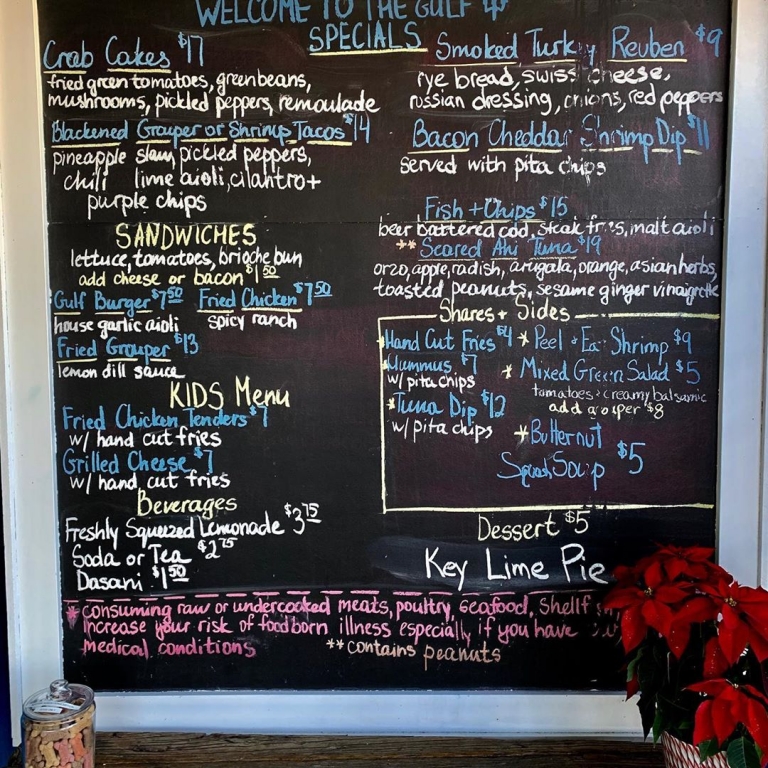 WELCOME TO THE GULF
SPECIALS
Crab Cakes $17
fried green tomatoes, green beans,
mushrooms, pickled peppers, remoulade
Blackened Grouper or Shrimp Tacos $14
pineapple slaw, pickled peppers,
chili lime aioli, cilantro +
purple chips
SANDWICHES
lettuce, tomatoes, brioche bun
add cheese or bacon $1.50
Gulf Burger $7.50 Fried Chicken $7.50
house garlic aioli spicy ranch
Fried Grouper $13
lemon dill sauce
KIDS Menu
Fried Chicken Tenders $7
w/ hand cut fries
Grilled Cheese $7
w/ hand cut fries
Beverages
Freshly Squeezed Lemonade $3.75
Soda or Tea $2.75
Dasani $1.50
Smoked Turkey Reuben $9
rye bread, swiss cheese,
russian dressing, onions, red peppers
Bacon Cheddar Shrimp Dip $11
served with pita chips
Fish + Chips $15
beer battered cod, steak fries, malt aioli
** Seared Ahi Tuna $19
orzo, apple, radish, arugala, orange, asian herbs,
toasted peanuts, sesame ginger vinaigrette
Shares + Sides
*Hand Cut Fries $4
*Hummus $7
w/ pita chips
*Tuna Dip $12
w/ pita chips
*Peel + Eat Shrimp $9
*Mixed Green Salad $5
tomatoes + creamy balsamic
add grouper $8
*Butternut
Squash Soup $5
Dessert $5
Key Lime Pie
* consuming raw or undercooked meats, poultry, seafood,
increase your risk of foodborn illness especially if you have
medical conditions **contains peanuts